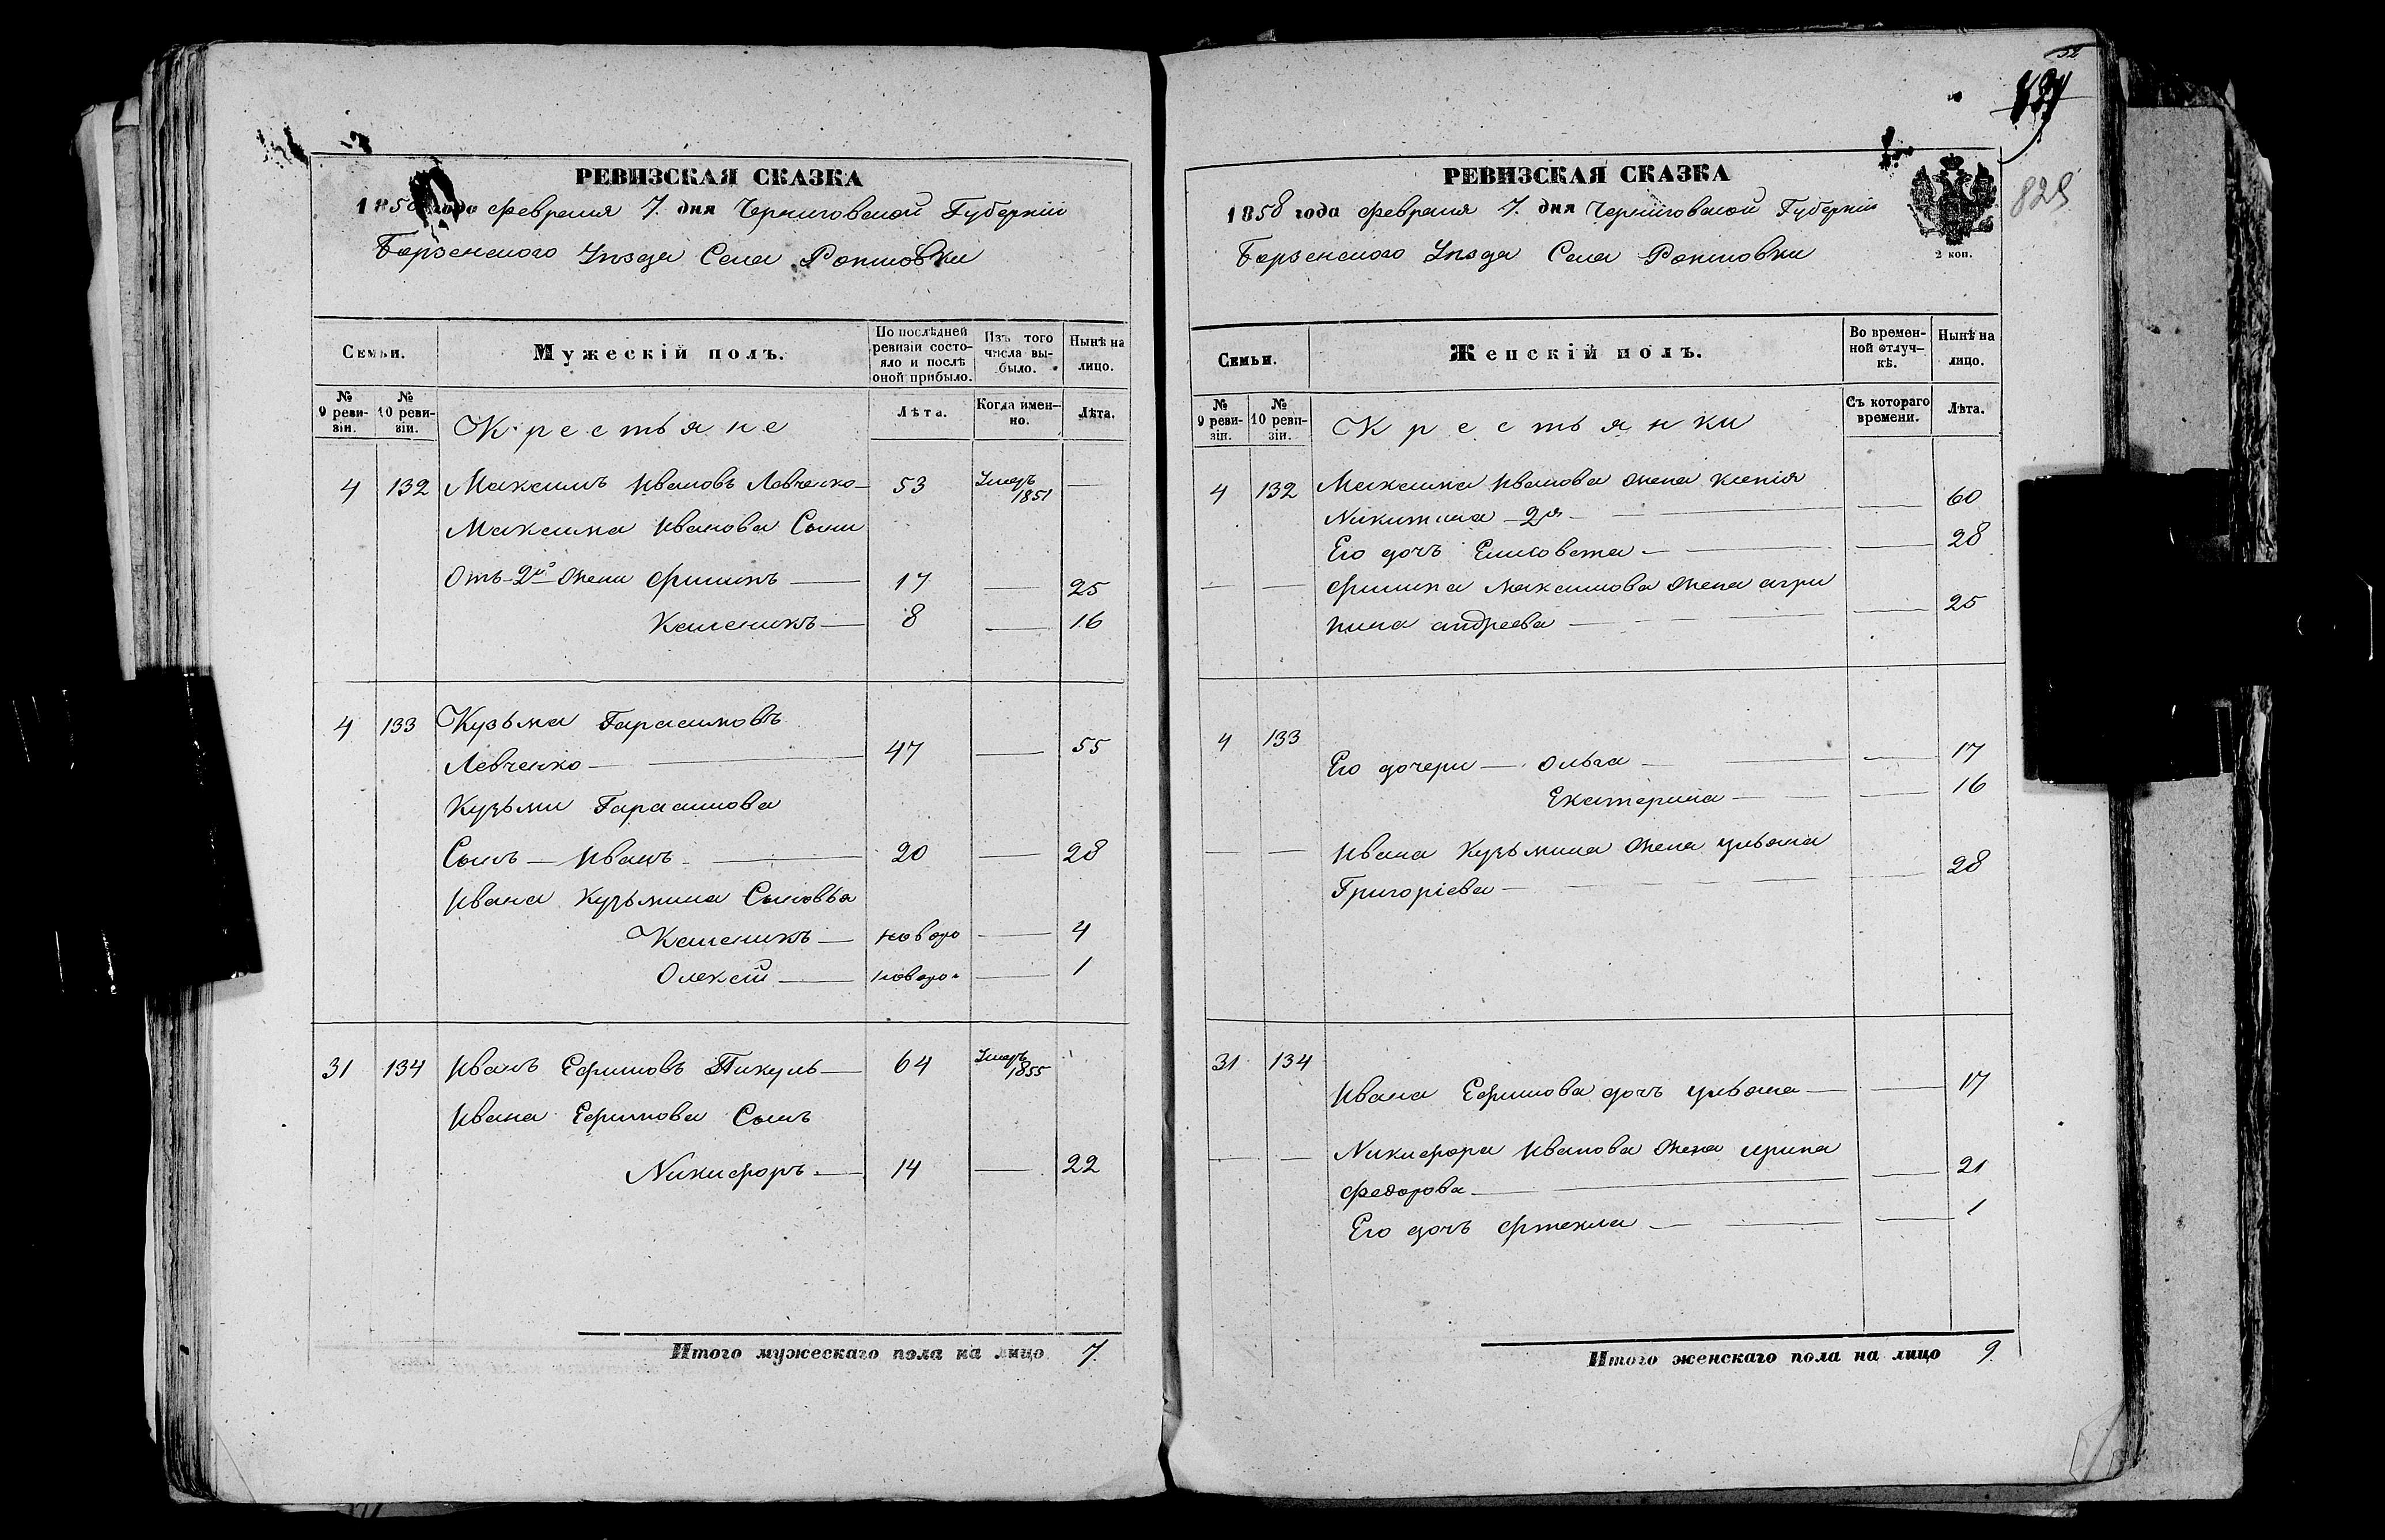 РЕВИЗСКАЯ СКАЗКА
1858 года Февраля 7. дня Черниговской Губерніи
Борзенского Уѣзда Села
Семьи.
Мужескій полъ.
По послѣдней ревизіи состо-
яло и послѣ
оной прибыло.
Изъ того
числа вы-
было.
Нынѣ на
лицо.
№
9 реви-
зіи.
№
10 реви-
зіи.
Крестьяне
Лѣта.
Когда имен-
но.
Лѣта.
4 132 Максимъ Ивановъ Левченко — 53 Умеръ 1851 —
Максима Иванова Сыни
Отъ 2й жени Филипъ — 17 — 25
Келеникъ — 8 — 16
4 133 Кузьма Гарасимовъ
Левченко — 47 — 55
Кузьми Гарасимова
Сынъ — Иванъ — 20 — 28
Ивана Кузьмина Сыновья
Келеникъ — новоро — 4
Олексій — новоро — 1
31 134 Иванъ Ефимовъ Пикуль — 64 Умеръ 1855
Ивана Ефимова Сынъ
Никифоръ — 14 — 22
Итого мужескаго пола на лицо 7.
32
828
РЕВИЗСКАЯ СКАЗКА
1858 года Февраля 7. дня Черниговской Губерніи
Борзенского Уѣзда Села
2 коп.
Семьи.
Женскій полъ.
Во времен-
ной отлуч-
кѣ.
Нынѣ на
лицо.
№
9 реви-
зіи.
№
10 реви-
зіи.
Крестьянки
Съ котораго
времени.
Лѣта.
4 132 Максима Иванова жена Ксенія
Никитина 2я — — 60
Его дочь Елисовета — — 28
— — Филипа Максимова жена агри
пина андреева — — 25
4 133
Его дочери — Ольга — — 17
Екатерина — — 16
— — Ивана Кузьмина жена ульяна
Григоріева — — 28
31 134
Ивана Ефимова дочь ульяна — — 17
— — Никифора Иванова жена ирина
Федорова — — 21
Его дочь — — 1
Итого женскаго пола на лицо 9.